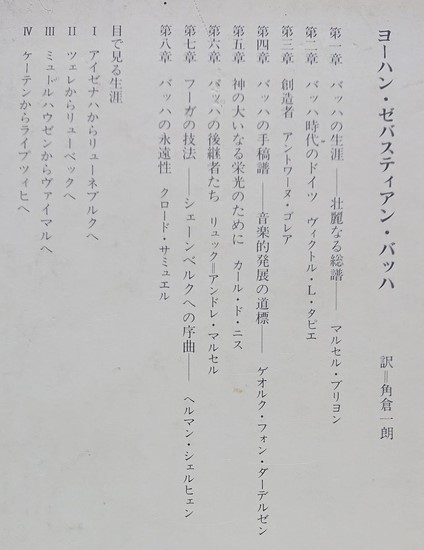 ヨーハン・ゼバスティアン・バッハ 訳=角倉一朗
第一章 バッハの生涯——壮麗なる総譜—— マルセル・ブリヨン
第二章 バッハ時代のドイツ ヴィクトル・L・タピエ
第三章 創造者 アントワーヌ・ゴレア
第四章 バッハの手稿譜——音楽的発展の道標—— ゲオルク・フォン・ダーデルゼン
第五章 神の大いなる栄光のために カール・ド・ニス
第六章 バッハの後継者たち リュック=アンドレ・マルセル
第七章 フーガの技法——シェーンベルクへの序曲—— ヘルマン・シェルヒェン
第八章 バッハの永遠性 クロード・サミュエル
目で見る生涯
Ⅰ アイゼナハからリューネブルクへ
Ⅱ ツェレからリューベックへ
Ⅲ ミュールハウゼンからヴァイマルへ
Ⅳ ケーテンからライプツィヒへ